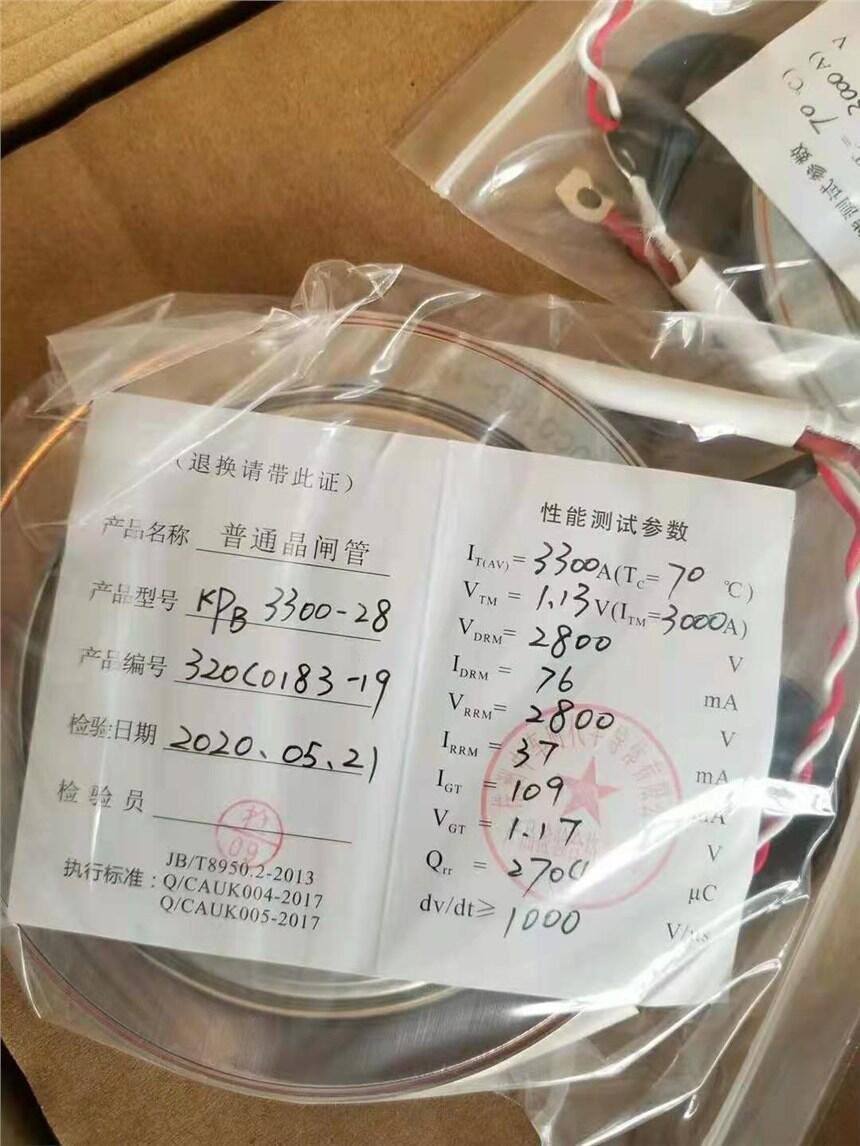 （退换请带此证）
产品名称 普通晶闸管
产品型号 KPB 3300-28
产品编号 320C0183-19
检验日期 2020.05.21
检验员
检
09
执行标准：JB/T8950.2-2013
Q/CAUK004-2017
Q/CAUK005-2017
性能测试参数
IT(AV)= 3300A(TC= 70 ℃)
VTM = 1.13V(ITM=3000A)
VDRM= 2800 V
IDRM = 76 mA
VRRM= 2800 V
IRRM = 37 mA
IGT = 109 mA
VGT = 1.17 V
Qrr = 2700 μC
dv/dt≥ 1000 V/μs
半导体有限
产品检验合格
测试参数
70 ℃)
3000A)
V